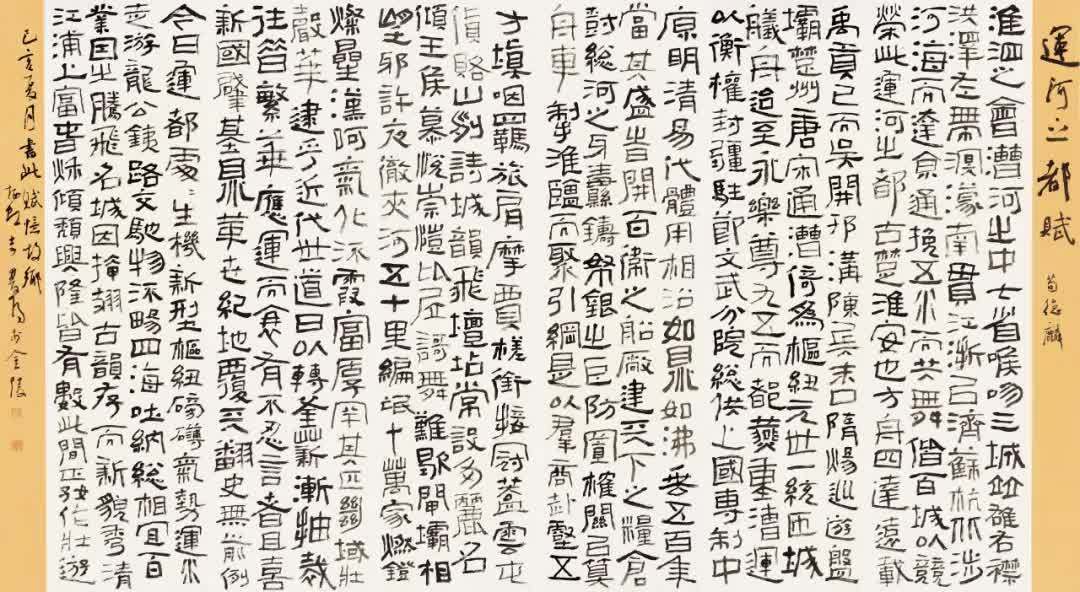 運河之都賦 荀德麟
淮泗之會漕河之中七省喉吻三城並雄右襟
洪澤左帶溟濛南貫江浙㠯濟蘇杭北涉
河海而達京通挽五水而共舞偕百城以競
榮此運河之都古楚淮安也方舟四達遠載
禹貢已而吳開邗溝陳兵末口隋煬巡遊盤
壩楚州唐宋通漕倚為樞紐元世一統西城
艤舟迨至永樂尊九五而都燕重漕運
以衡權封疆駐節文武分院總供上國專制中
原明清易代體用相沿如鼎如沸垂五百年
當其盛時開百衛之船廠建天下之糧倉
總河之鑄帑銀之巨防置榷關㠯
舟車制淮鹽而聚引綱是以羣商赴壑五
方填咽羈旅肩摩賈槎銜接冠蓋雲屯
貨賂山列詩城韻飛壇坫常設多麗名
傾王侯慕悅崇愷比居謌舞難歇閘壩相
望邪許夜徹夾河五十里編氓十萬家燃鐙
燦星漢呵氣化流霞富厚罕其匹域壯
嚴華逮乎近代世道日以轉釜薪漸抽裁
往昔繁華應運而衰有不忍言者且喜
新國肇基鼎革世紀地覆天翻史無前例
今日運都處々生機新型樞紐磅礴氣勢運水
走游龍公鐵路交馳物流暢四海吐納總相宜百
業因之騰飛名城因掉翅古韻存而新貌秀清
江浦上富春秋傾頹興隆皆有數此間正作壯遊
己亥夏月書此賦憶故鄉
於金陵